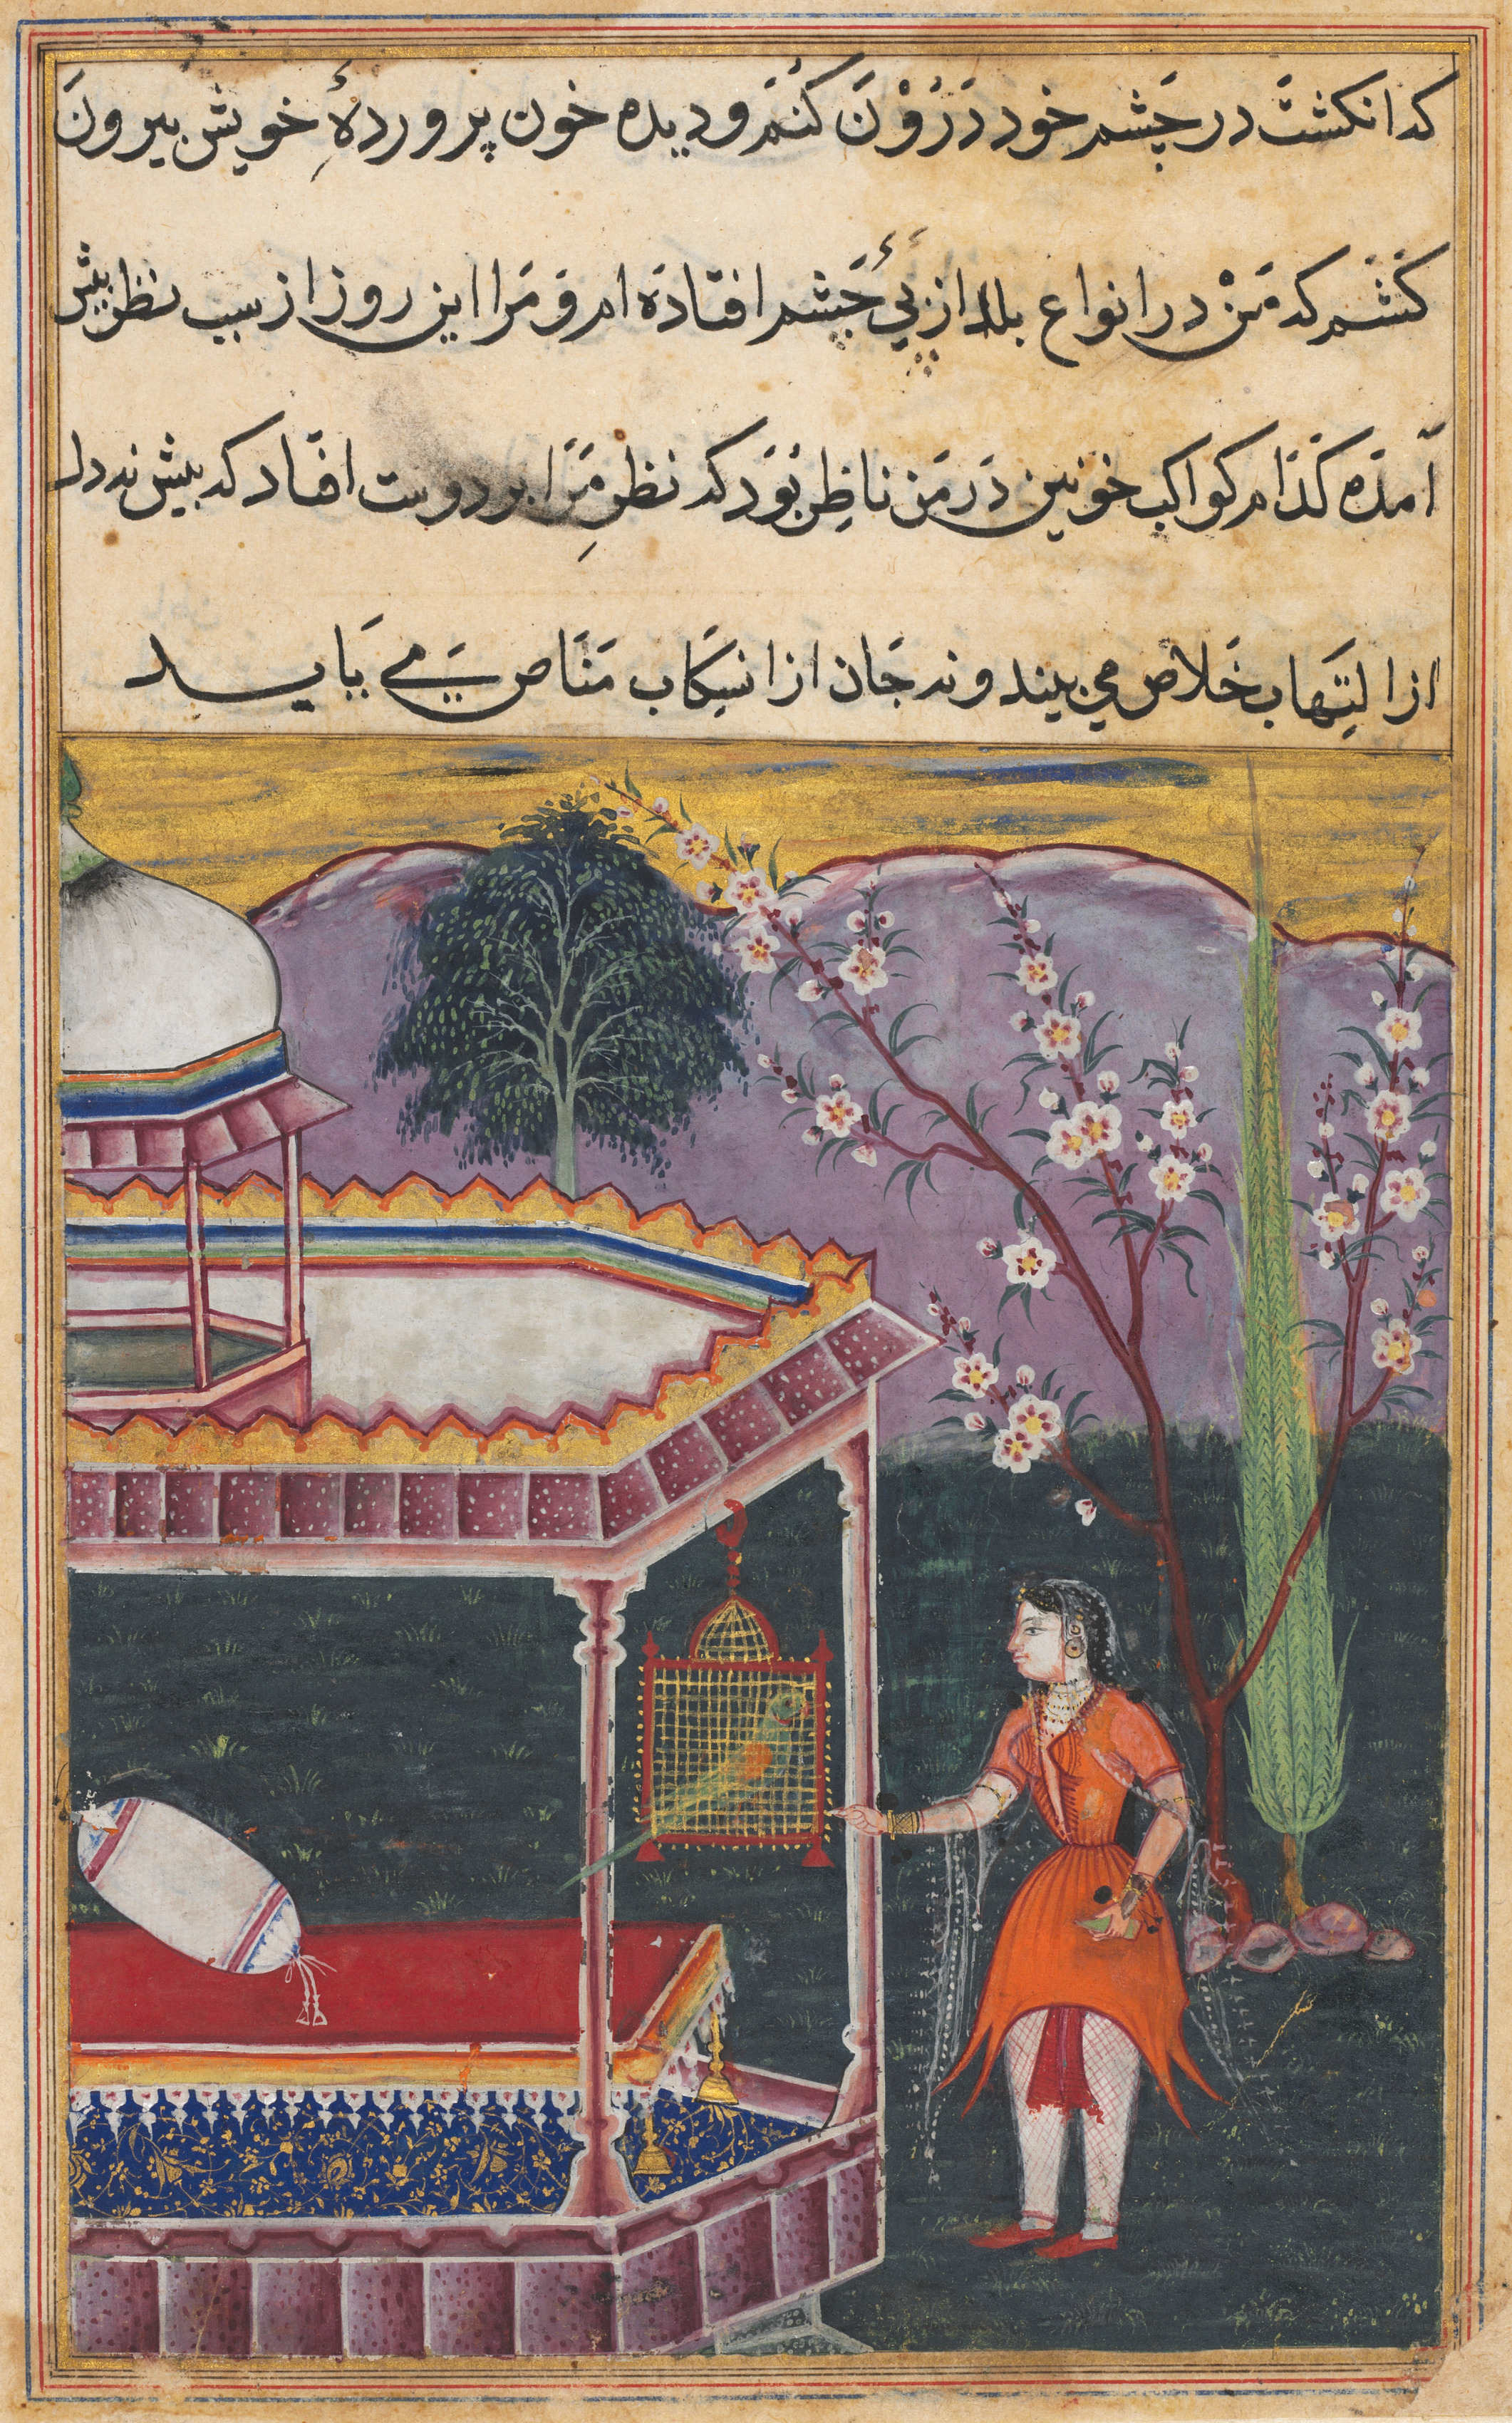 که انکشت در چشم خود دَرَوْنَ کنَم و دیده خون پروردهٔ خویش بیرونَ
کَشَم که مَنْ در انواع بلا از پیٔ چَشم افتادَه ام و مَرا این روز از سبب نظر پیش
آمدَه کَدَام کواکب خونین دَر مَن ناظِر بَوَد که نظرِ مَرَا بر دوست افتاد که بیش نه دل
از التِهاب خَلاص می بیند و نه جَان از انسِکاب مَنَاص مے یَابد